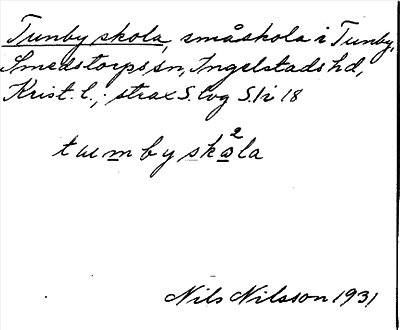 Tunby skola, småskola i Tunby,
Smedstorps sn, Ingelstads hd,
Krist. l.; strax S. lvg S. li 18
tumby skola
2
Nils Nilsson 1931